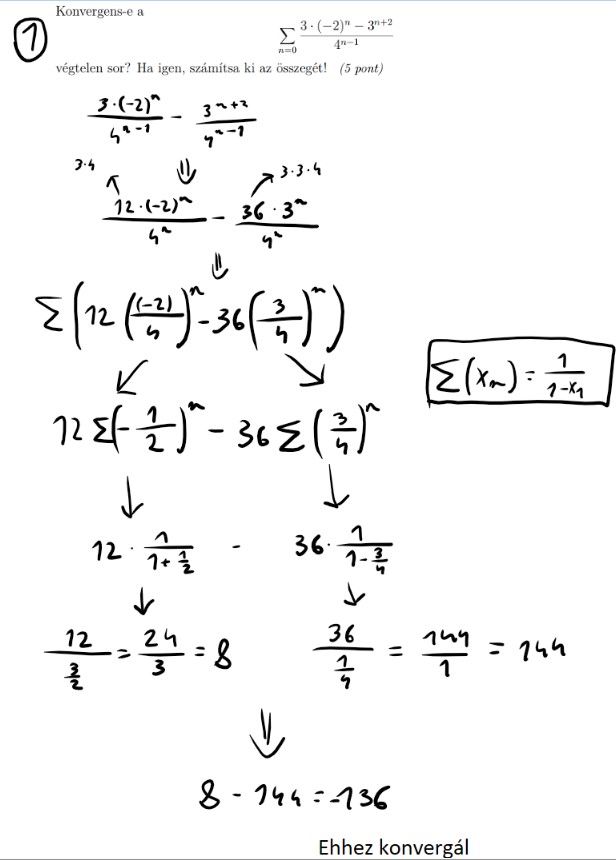 1
Konvergens-e a
\sum_{n=0} \frac{3 \cdot (-2)^n - 3^{n+2}}{4^{n-1}}
végtelen sor? Ha igen, számítsa ki az összegét! (5 pont)
\frac{3 \cdot (-2)^n}{4^{n-1}} - \frac{3^{n+2}}{4^{n-1}}
3·4 ↖ ⇓ ↗ 3·3·4
\frac{12 \cdot (-2)^n}{4^n} - \frac{36 \cdot 3^n}{4^n}
⇓
Σ(12 (\frac{(-2)}{4})^n - 36 (\frac{3}{4})^n)
Σ(x_n) = \frac{1}{1-x_1}
↙ ↘
12 Σ(-\frac{1}{2})^n - 36 Σ (\frac{3}{4})^n
↓ ↓
12 · \frac{1}{1+\frac{1}{2}} - 36 · \frac{1}{1-\frac{3}{4}}
↓ ↓
\frac{12}{\frac{3}{2}} = \frac{24}{3} = 8 \frac{36}{\frac{1}{4}} = \frac{144}{1} = 144
⇓
8 - 144 = -136
Ehhez konvergál